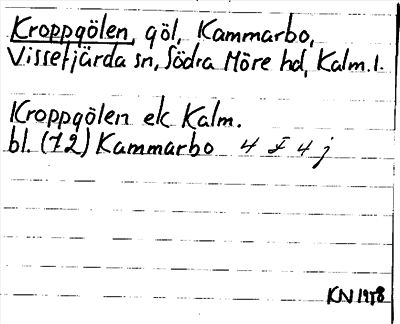 Kroppgölen, göl, Kammarbo,
Vissefjärda sn, Södra Möre hd, Kalm. l.
Kroppgölen ek Kalm.
bl. (72) Kammarbo 4 F 4 j
KN 1958